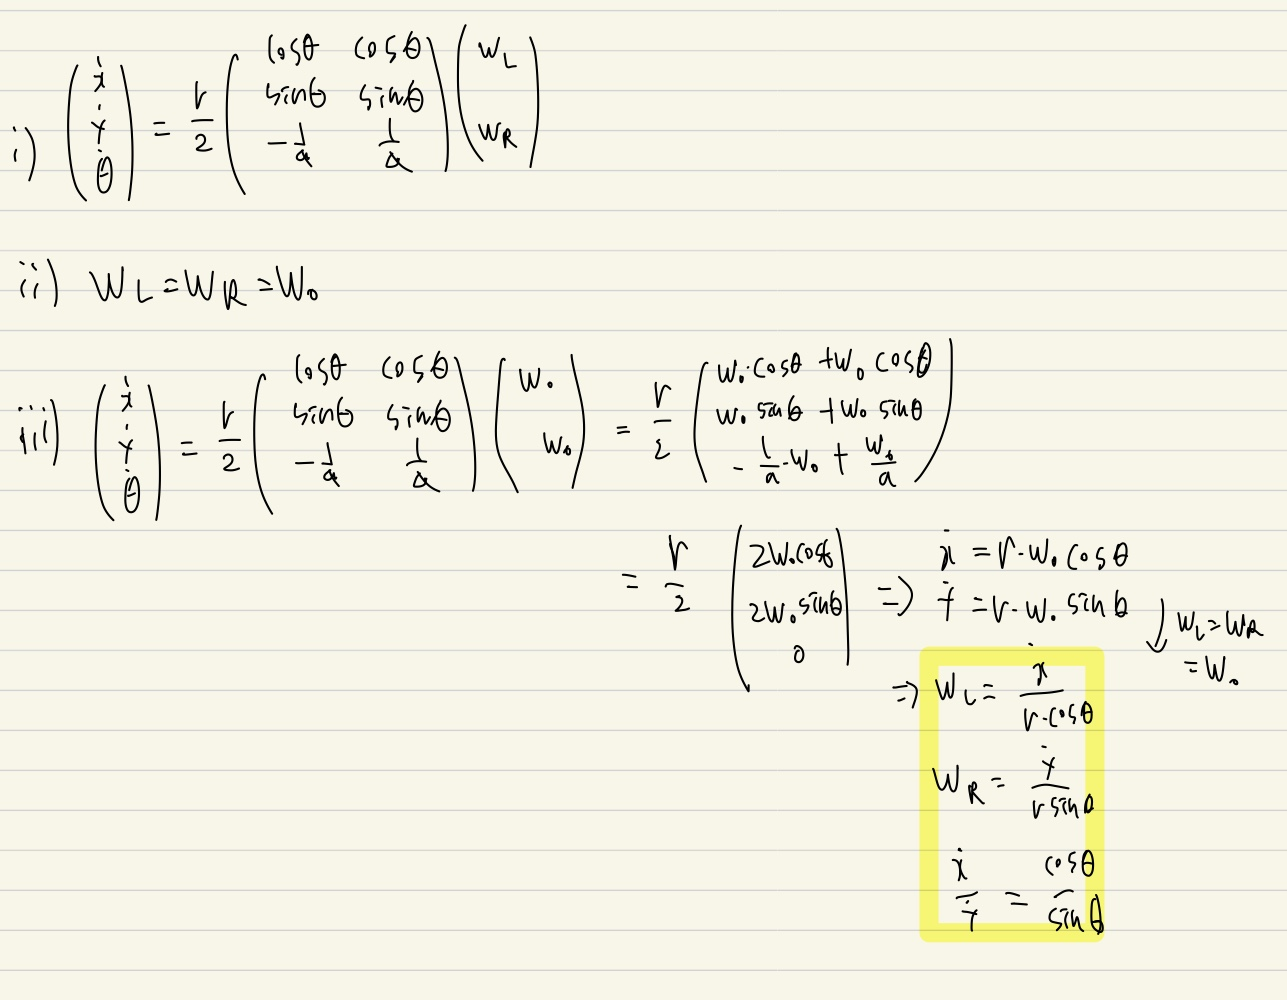 i) (ẋ ẏ θ̇) = r/2 (cosθ cosθ sinθ sinθ -1/a 1/a) (W_L W_R)
ii) W_L = W_R = W₀
iii) (ẋ ẏ θ̇) = r/2 (cosθ cosθ sinθ sinθ -1/a 1/a) (W₀ W₀) = r/2 (W₀·cosθ + W₀ cosθ W₀ sinθ + W₀ sinθ -1/a·W₀ + W₀/a)
= r/2 (2W₀cosθ 2W₀sinθ 0) => ẋ = r·W₀ cosθ
ẏ = r·W₀ sinθ ↓ W_L = W_R
= W₀
=> W_L = ẋ/(r·cosθ)
W_R = ẏ/(r sinθ)
ẋ/ẏ = cosθ/sinθ